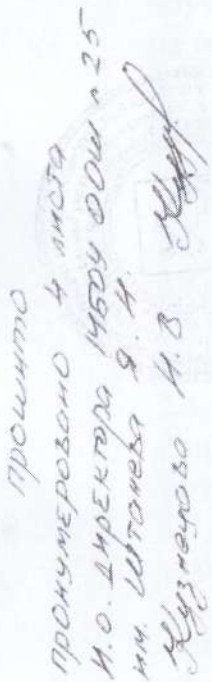 прошито
пронумеровано 4 листа
И.о. директора МБОУ ООШ №25
им. Штанева Я. И.
Кузнецова И.В